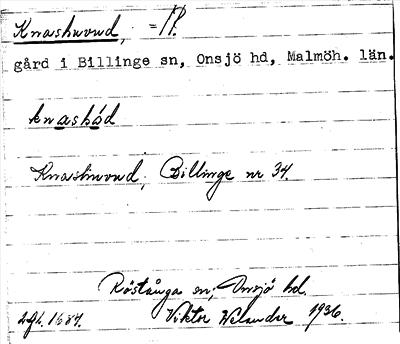 Knashuvud, = P.
gård i Billinge sn, Onsjö hd, Malmöh. län.
knashöd
Knashuvud, Billinge nr 34.
Röstånga sn, Onsjö hd.
Viktor Welander 1936.